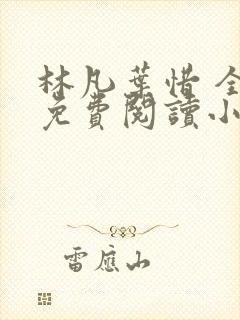 林凡葉惜 全
免費閱讀小
雷應山